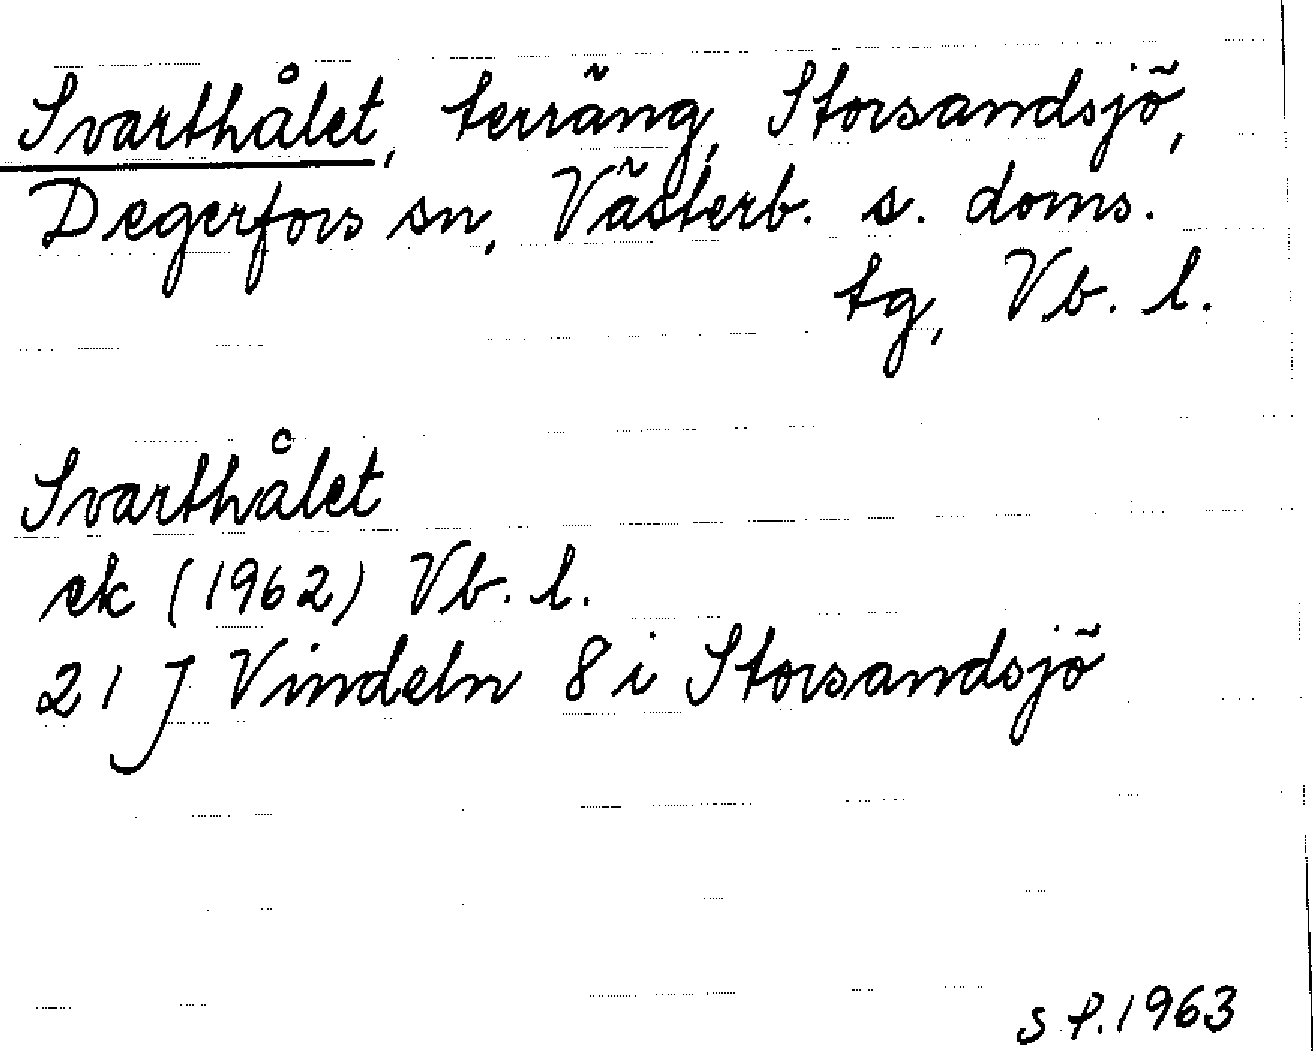 Svarthålet, terräng, Storsandsjö,
Degerfors sn, Västerb. s. doms.
tg, Vb. l.
Svarthålet
ek (1962) Vb. l.
21 J Vindeln 8 i Storsandsjö
S P. 1963